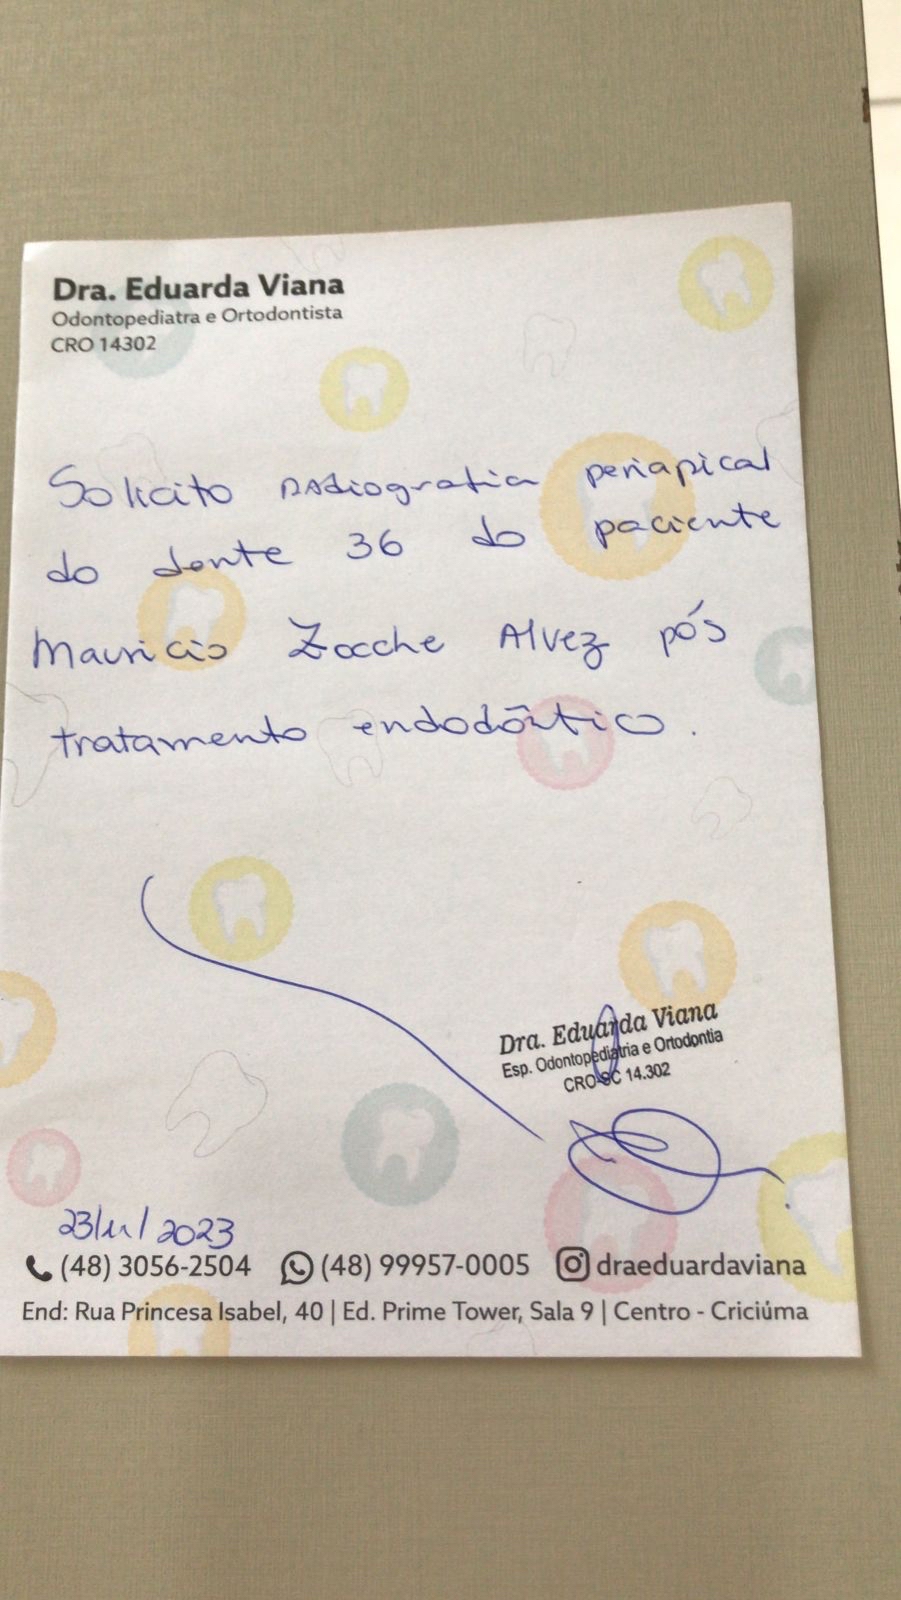 Dra. Eduarda Viana
Odontopediatra e Ortodontista
CRO 14302
Solicito radiografia periapical
do dente 36 do paciente
Mauricio Zocche Alvez pós
tratamento endodôntico.
Dra. Eduarda Viana
Esp. Odontopediatria e Ortodontia
CRO-SC 14.302
23/11/2023
(48) 3056-2504 (48) 99957-0005 draeduardaviana
End: Rua Princesa Isabel, 40 | Ed. Prime Tower, Sala 9 | Centro - Criciúma